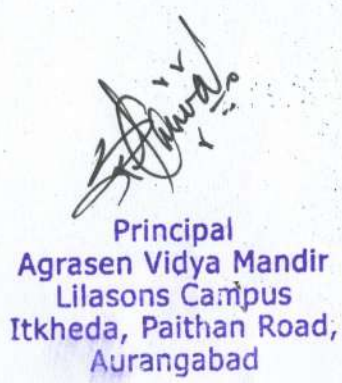 Principal
Agrasen Vidya Mandir
Lilasons Campus
Itkheda, Paithan Road,
Aurangabad